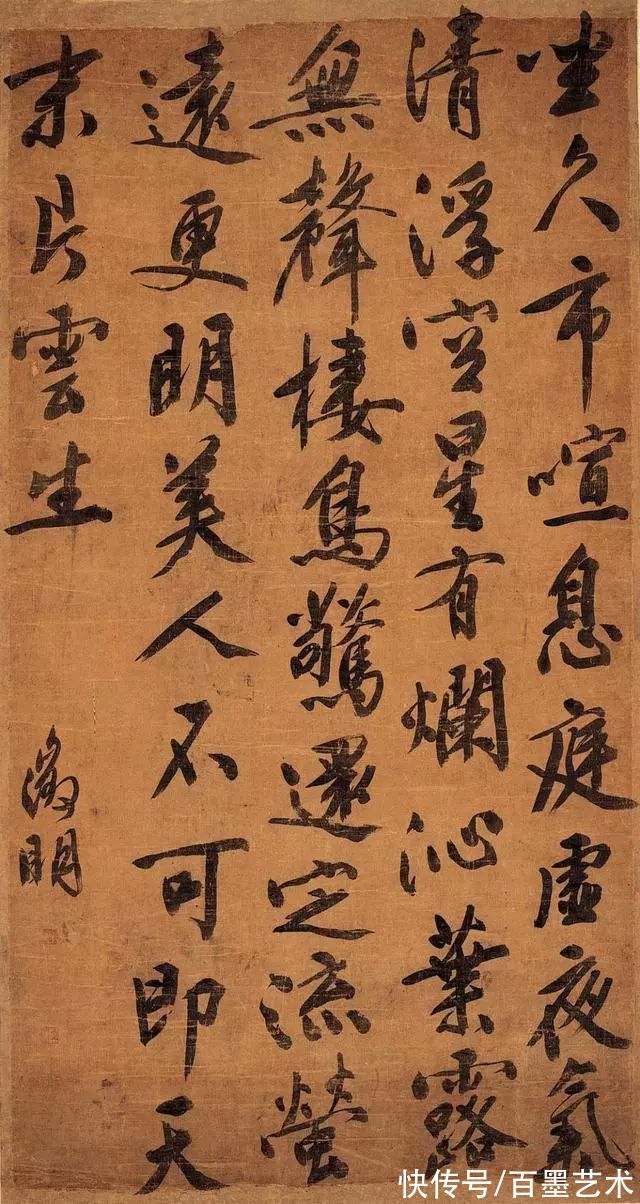 坐久市喧息庭虛夜氣
清浮空星有爛沁葉露
無聲棲鳥驚還定流螢
遠更明美人不可即天
末片雲生
徵明
快传号/百墨艺术